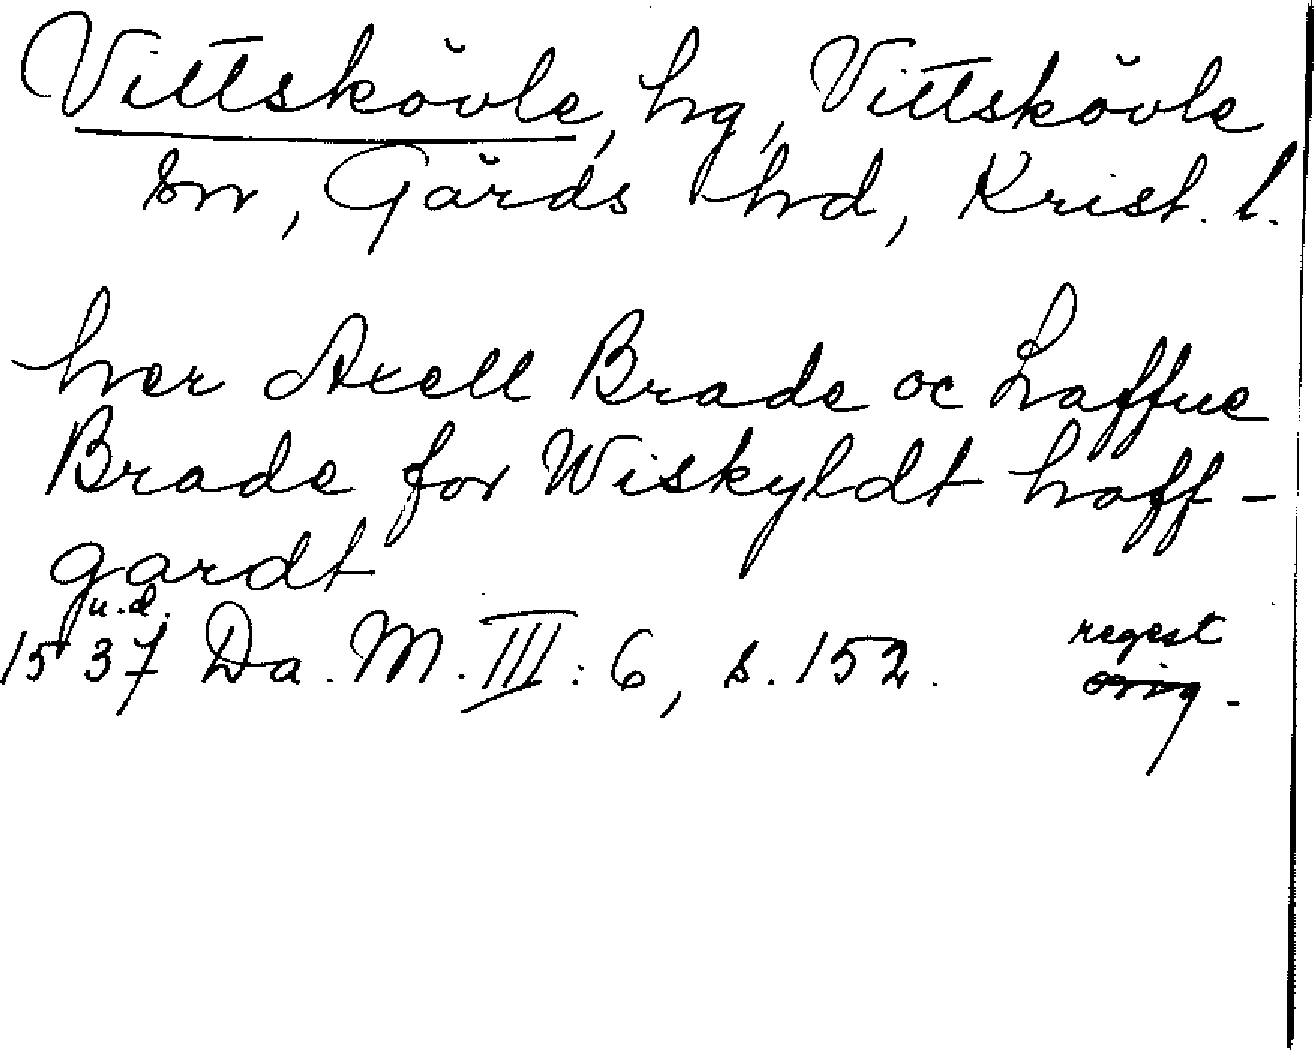 Vittskövle, hg, Vittskövle
sn, Gärds hd, Krist. l.
her Axell Brade oc Laffue
Brade for Wiskyldt haff-
gardt
u.d.
1537 Da. M. III: 6, s. 152. regest
orig.